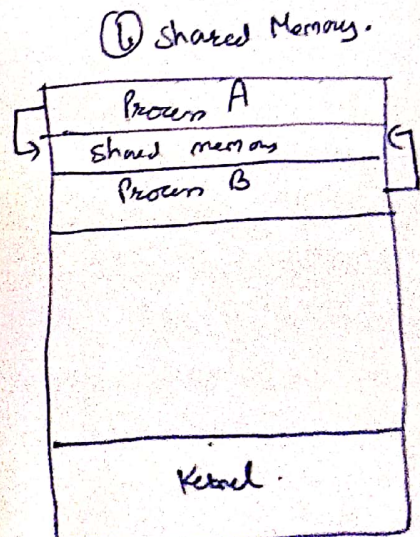 ① Shared Memory.
Process A
Shared memory
Process B
Kernel.